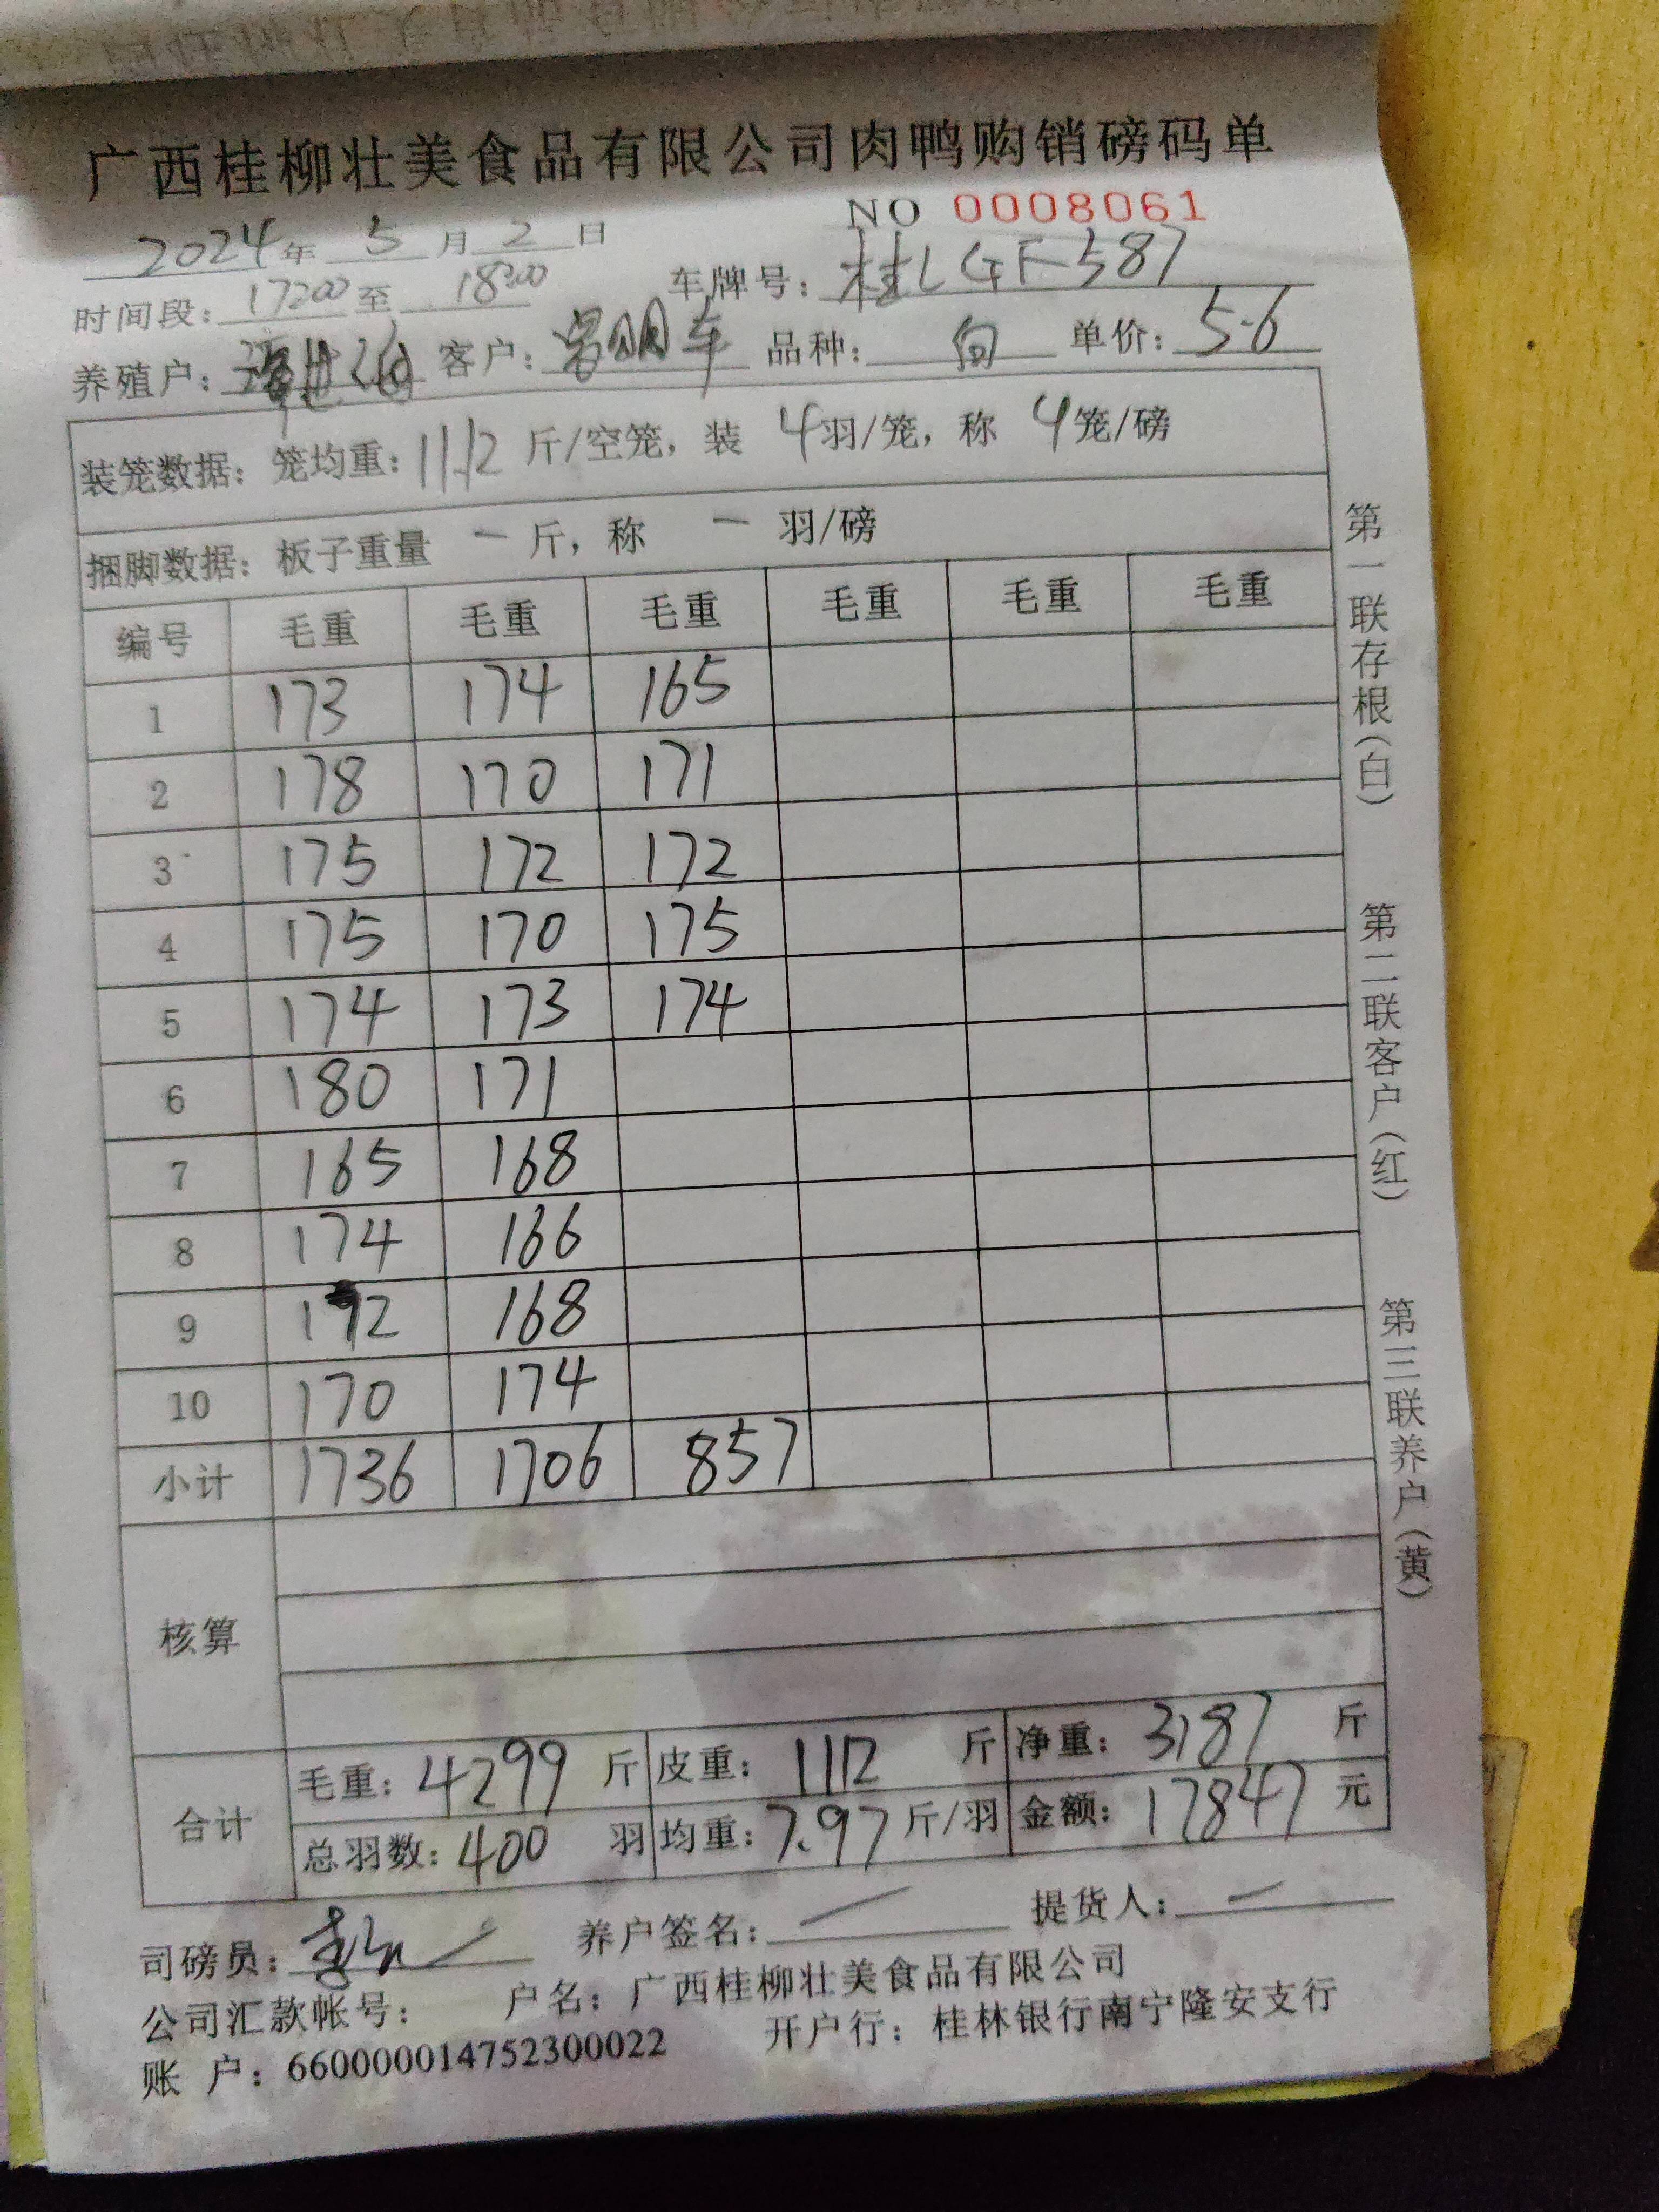 广西桂柳壮美食品有限公司肉鸭购销磅码单
NO 0008061
2024年 5 月 2 日
时间段: 17:00 至 18:00 车牌号: 桂LGF587
养殖户: 客户: 明车 品种: 白 单价: 5.6
装笼数据: 笼均重: 11.12 斤/空笼, 装 4羽/笼, 称 4笼/磅
捆脚数据: 板子重量 一 斤, 称 一 羽/磅
编号 毛重 毛重 毛重 毛重 毛重 毛重
1 173 174 165
2 178 170 171
3 175 172 172
4 175 170 175
5 174 173 174
6 180 171
7 165 168
8 174 166
9 172 168
10 170 174
小计 1736 1706 857
核算
合计
毛重: 4299 斤 皮重: 1112 斤 净重: 3187 斤
总羽数: 400 羽 均重: 7.97 斤/羽 金额: 17847 元
司磅员: 养户签名: 提货人:
公司汇款帐号: 户名: 广西桂柳壮美食品有限公司
账 户: 660000014752300022 开户行: 桂林银行南宁隆安支行
第一联存根(白) 第二联客户(红) 第三联养户(黄)